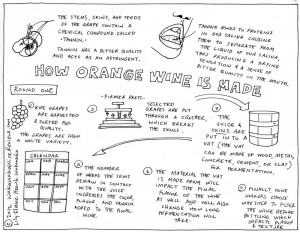 THE STEMS, SKINS, AND SEEDS
OF THE GRAPE CONTAIN A
CHEMICAL COMPOUND CALLED
"TANNIN."
TANNIN HAS A BITTER QUALITY
AND ACTS AS AN ASTRINGENT.
TANNIN BINDS TO PROTEINS
IN OUR SALIVA CAUSING
THEM TO SEPARATE FROM
THE LIQUID OF OUR SALIVA,
THUS PRODUCING A DRYING
SENSATION & A SENSE OF
BITTER QUALITY IN THE MOUTH.
HOW ORANGE WINE IS MADE
ROUND ONE
FIRMER PARTS
① RIPE GRAPES
ARE HARVESTED
& SORTED FOR
QUALITY.
THE GRAPES ARE FROM
A WHITE VARIETY.
②
SELECTED
GRAPES ARE PUT
THROUGH A CRUSHER,
WHICH BREAKS
THE SKINS.
③
THE
JUICE &
SKINS ARE
PUT INTO A
VAT (THE VAT
CAN BE MADE OF WOOD, METAL,
CONCRETE, CEMENT, OR CLAY)
FOR FERMENTATION.
CALENDAR
④ THE NUMBER
OF WEEKS THE SKINS
REMAIN IN CONTACT
WITH THE JUICE
INCREASES THE COLOR,
FLAVOR AND TANNIN
ADDED TO THE FINAL
WINE.
⑤ THE MATERIAL THE VAT
IS MADE FROM WILL
IMPACT THE FINAL
FLAVOR OF THE WINE
AS WELL AND WILL ALSO
CHANGE HOW LONG
FERMENTATION WILL
TAKE.
⑥ FINALLY, WINE
MAKERS CHOOSE
WHETHER TO FILTER
THE WINE BEFORE
BOTTLING WHICH
IMPACTS FLAVOR
& TEXTURE